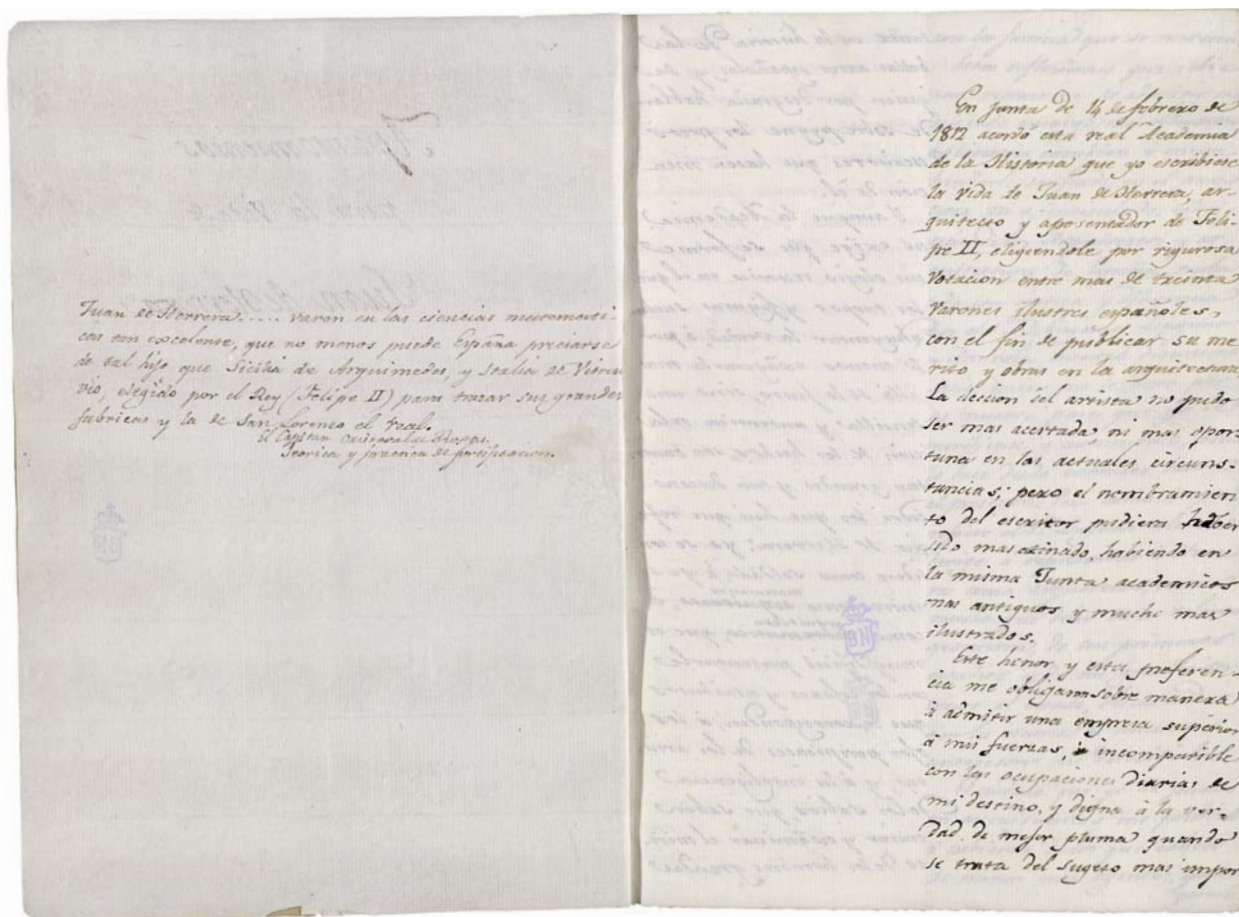 Juan de Herrera.... varon en las ciencias matemati-
cas tan excelente, que no menos puede España preciarse
de tal hijo que Sicilia de Arquimedes, y Italia de Vitru
vio, elegido por el Rey (Felipe II) para trazar sus grandes
fabricas y la de San Lorenzo el real.
El Capitan Cristoval de Roxas.
Teorica y practica de fortificacion.
BN
En junta de 14 de febrero de
1812 acordó esta real Academia
de la Historia que yo escribiese
la vida de Juan de Herrera, ar-
quitecto y aposentador de Feli-
pe II, eligiendole por rigurosa
votacion entre mas de treinta
varones ilustres españoles,
con el fin de publicar su me
rito y obras en la arquitectura.
La eleccion del artista no pudo
ser mas acertada, ni mas opor
tuna en las actuales circuns-
tancias; pero el nombramien
to del escritor pudiera haber
sido mas atinado, habiendo en
la misma Junta academicos
mas antiguos y mucho mas
ilustrados.
Este honor y esta preferen-
cia me obligaron sobre manera
á admitir una empresa superior
á mis fuerzas, incompatible
con las ocupaciones diarias de
mi destino, y digna á la ver-
dad de mejor pluma quando
se trata del sugeto mas impor
BN